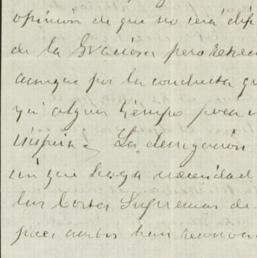 opinión de que no será dif
de la Graciosa pero
aunque por la conducta qu
ya algun tiempo poca
inspira. La denegación
sin que haga necesidad
las Cortes Supremas de
pues ambos han reconoc